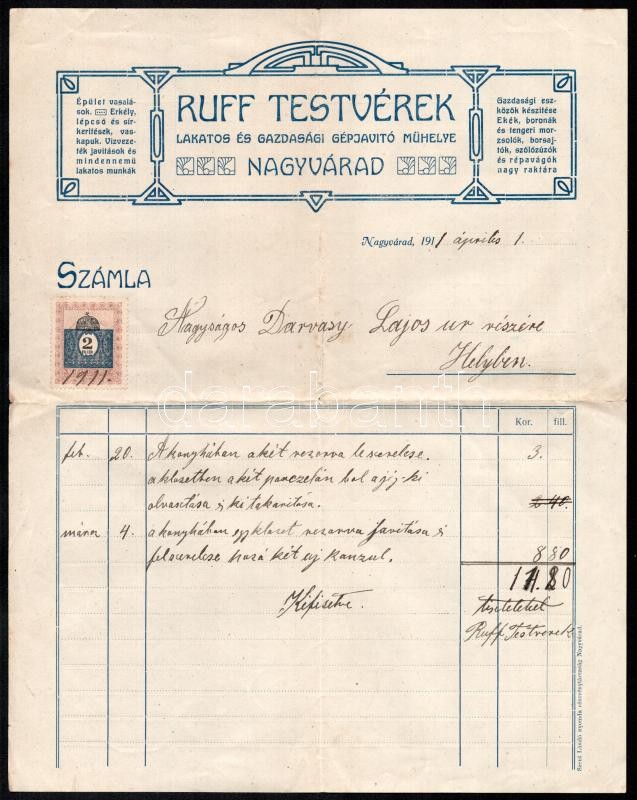 Épület vasalá-
sok. Erkély,
lépcső és sír-
kerítések, vas-
kapuk. Vizveze-
ték javitások és
mindennemü
lakatos munkák
RUFF TESTVÉREK
LAKATOS ÉS GAZDASÁGI GÉPJAVITÓ MÜHELYE
NAGYVÁRAD
Gazdasági esz-
közök készitése
Ekék, boronák
és tengeri mor-
zsolók, borsaj-
tók, szőlözúzók
és répavágók
nagy raktára
Nagyvárad, 1911 április 1.
SZÁMLA
2
FILLÉR
1911.
Nagyságos Darvasy Lajos ur részére
Helyben.
darabanth
Kor. fill.
feb. 20. A konyhában a két rezerva leszerelése 3.
a klosetben a két porczelán
olvasztása és kitakaritása. 2 40.
márcz 4. a konyhában egy kloset rezerva javitása és
felszerelése hozá két uj konzul. 8 80
11.80
Kifizetve. tisztelettel
Ruff Testverek